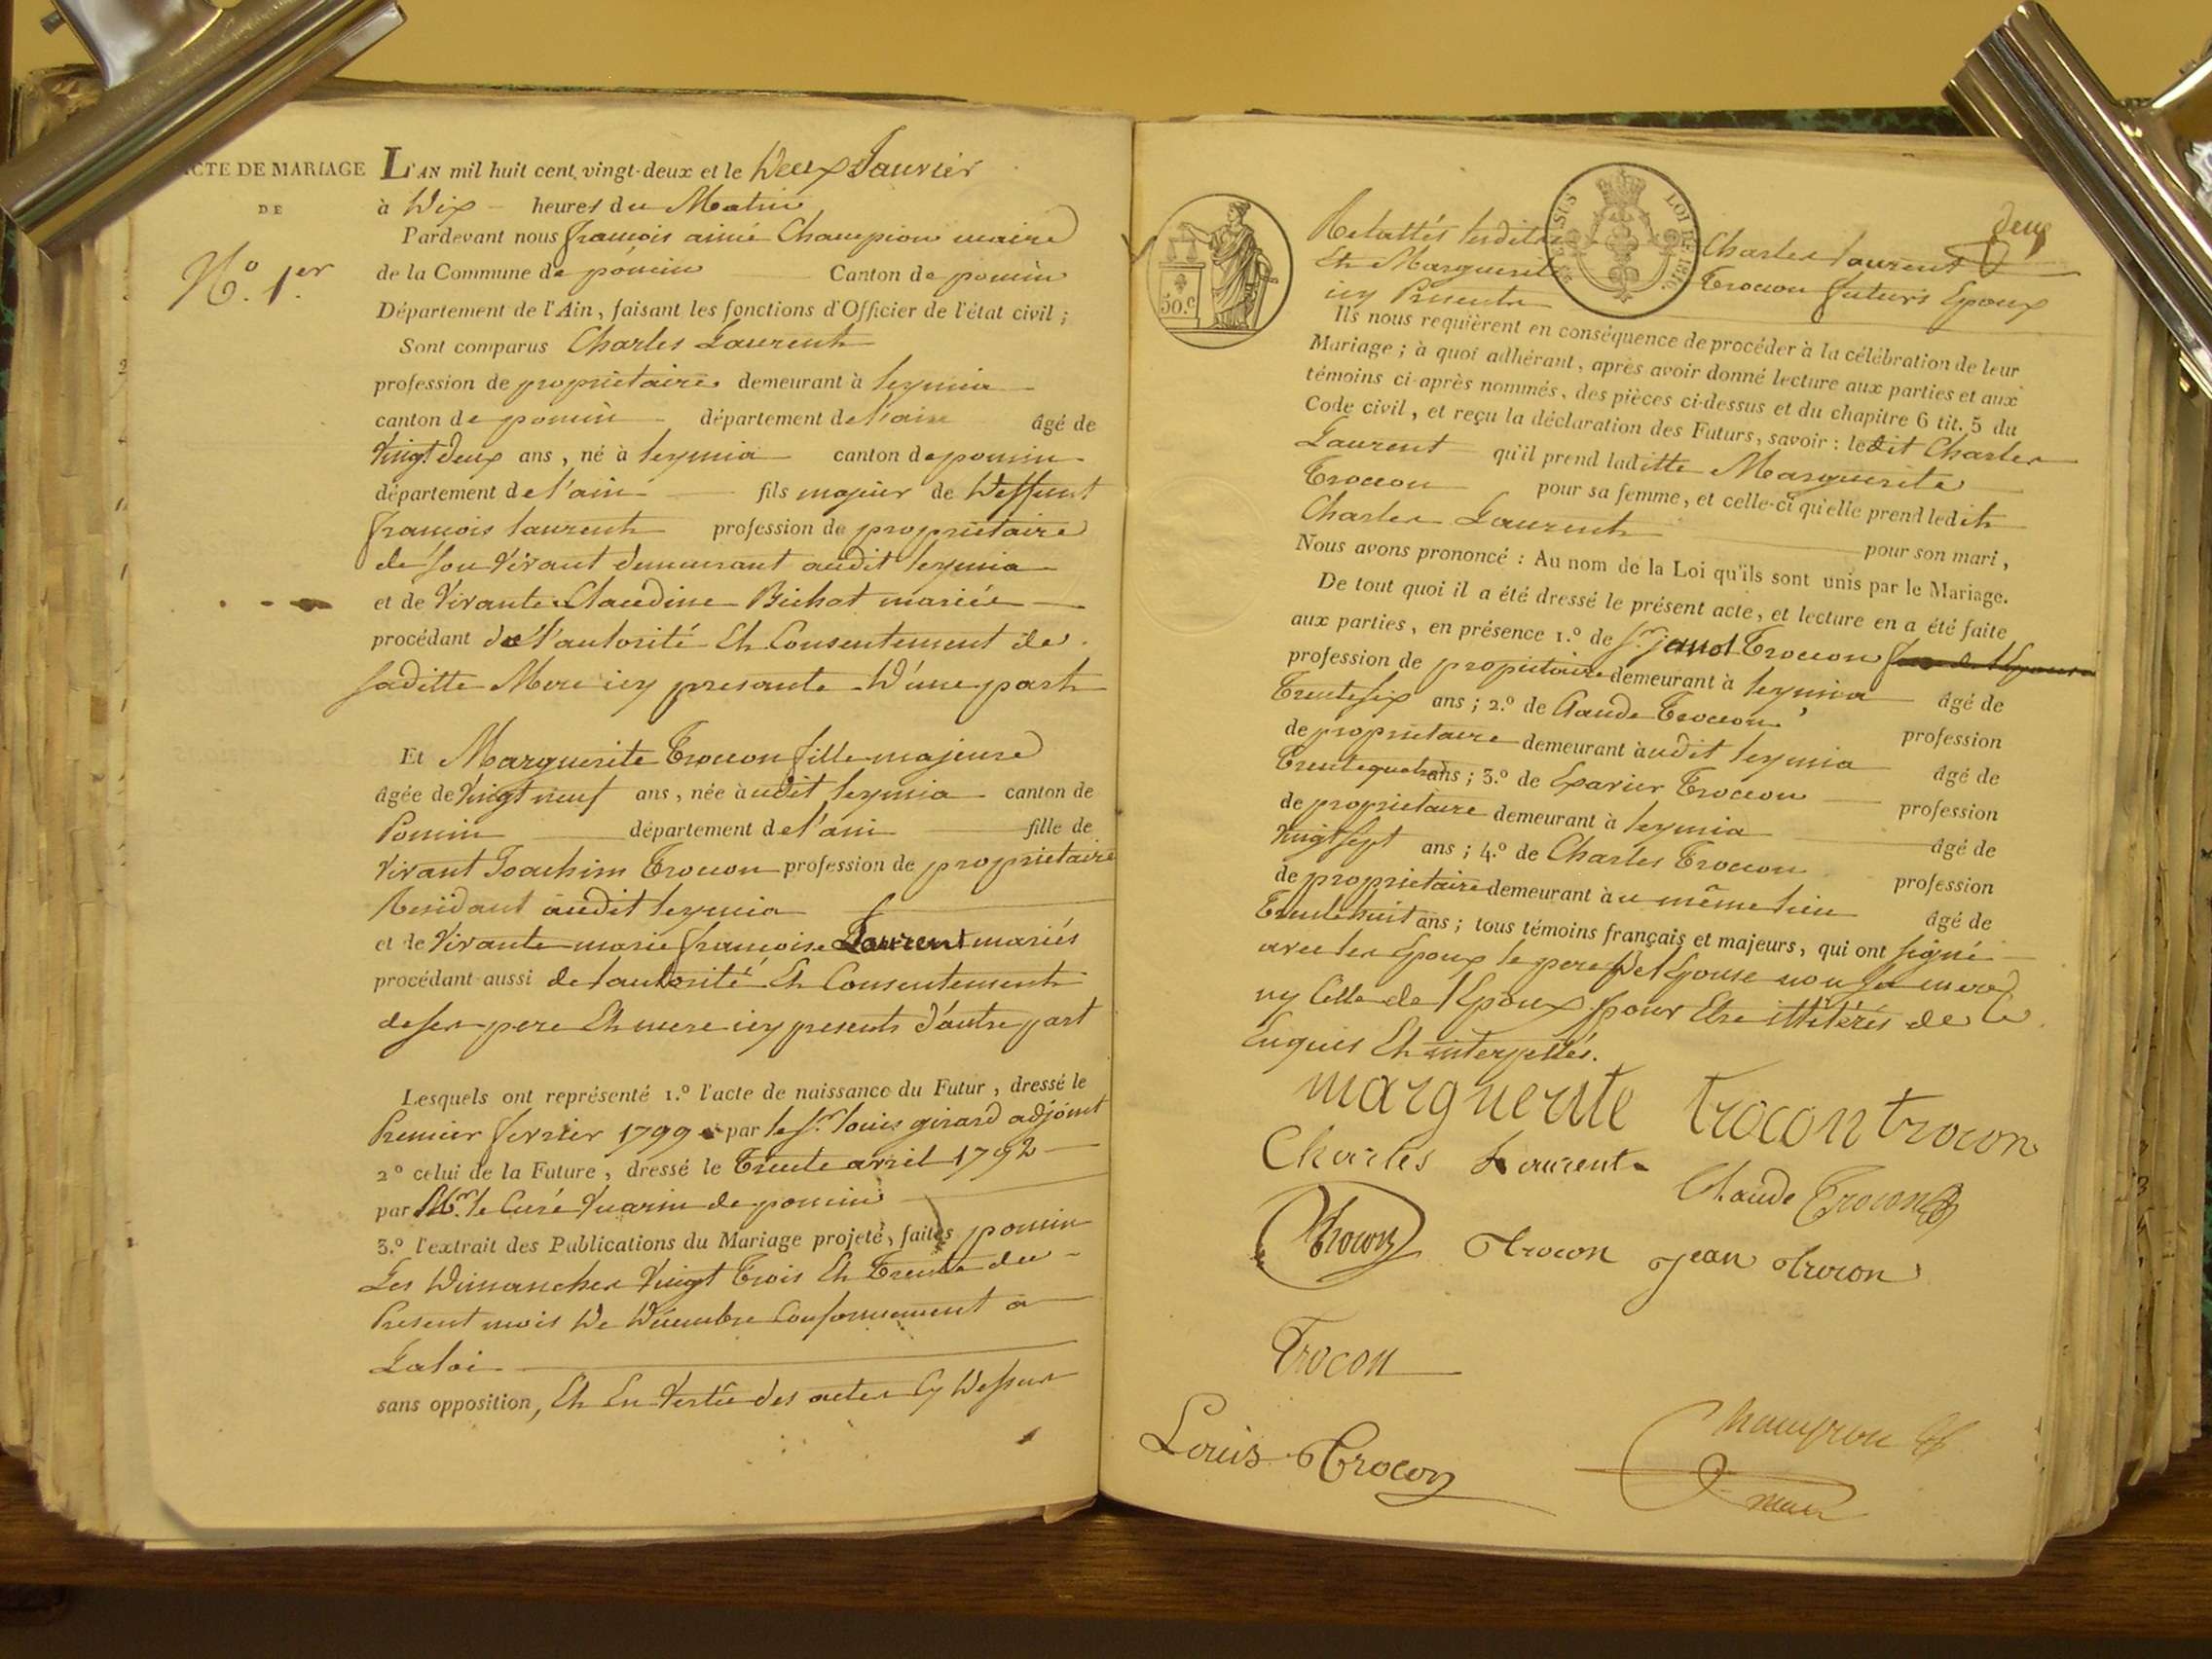 ACTE DE MARIAGE
DE
N.º 1.er
L'AN mil huit cent vingt-deux et le Deux Janvier
à Dix heures du Matin
Pardevant nous françois aimé Champion maire
de la Commune de poncin Canton de poncin
Département de l'Ain, faisant les fonctions d'Officier de l'état civil ;
Sont comparus Charles Laurent
profession de propriétaire demeurant à leymia
canton de poncin département de l'ain âgé de
Vingt deux ans, né à leymia canton de poncin
département de l'ain fils majeur de Deffunt
françois laurent profession de propriétaire
de son vivant demeurant audit leymia
et de Vivante Claudine Bichat mariés
procédant de l'autorité Et Consentement de
saditte Mere icy presante D'une part
Et Marguerite Trocon fille majeure
âgée de Vingt neuf ans, née audit leymia canton de
Poncin département de l'ain fille de
Vivant Joachim Trocon profession de propriétaire
Residant audit leymia
et de Vivante marie françoise Laurent mariés
procédant aussi de l'autorité Et Consentement
de ses pere Et mere icy presents d'autre part
Lesquels ont représenté 1.º l'acte de naissance du Futur, dressé le
Premier fevrier 1799 par le Sr. louis girard adjoint
2º celui de la Future, dressé le Trente avril 1792
par Mr. le Curé de poncin
3.º l'extrait des Publications du Mariage projeté, faites poncin
Les Dimanches Vingt Trois Et Trente du
Present mois De Décembre Conformement a
La loi
sans opposition, Et En Vertu des actes Cy Dessus
50.c
EN SUS
LOI DE 1816
deux
Relattés lesdits Charles laurent
Et Marguerite Trocon futurs Epoux
icy Presents
Ils nous requièrent en conséquence de procéder à la célébration de leur
Mariage ; à quoi adhérant, après avoir donné lecture aux parties et aux
témoins ci-après nommés, des pièces ci-dessus et du chapitre 6 tit. 5 du
Code civil, et reçu la déclaration des Futurs, savoir : ledit Charles
Laurent qu'il prend laditte Marguerite
Trocon pour sa femme, et celle-ci qu'elle prend ledit
Charles Laurent pour son mari,
Nous avons prononcé : Au nom de la Loi qu'ils sont unis par le Mariage.
De tout quoi il a été dressé le présent acte, et lecture en a été faite
aux parties, en présence 1.º de Sr. Trocon
profession de propriétaire demeurant à leymia âgé de
Trente six ans ; 2.º de Claude Trocon profession
de propriétaire demeurant audit leymia âgé de
Trente quatre ans ; 3.º de Exavier Trocon profession
de propriétaire demeurant à leymia âgé de
Vingt sept ans ; 4.º de Charles Trocon profession
de propriétaire demeurant au même lieu âgé de
Trente huit ans ; tous témoins français et majeurs, qui ont signé
avec les Epoux le pere De l'Epouse non sa mere
ny Celle de l'Epoux pour Etre illitérés de ce
Enquis Et interpellés.
marguerite trocon trocon
Charles Laurent
Claude Trocon
Trocon Trocon jean trocon
Trocon
Louis Trocon
Champion
maire